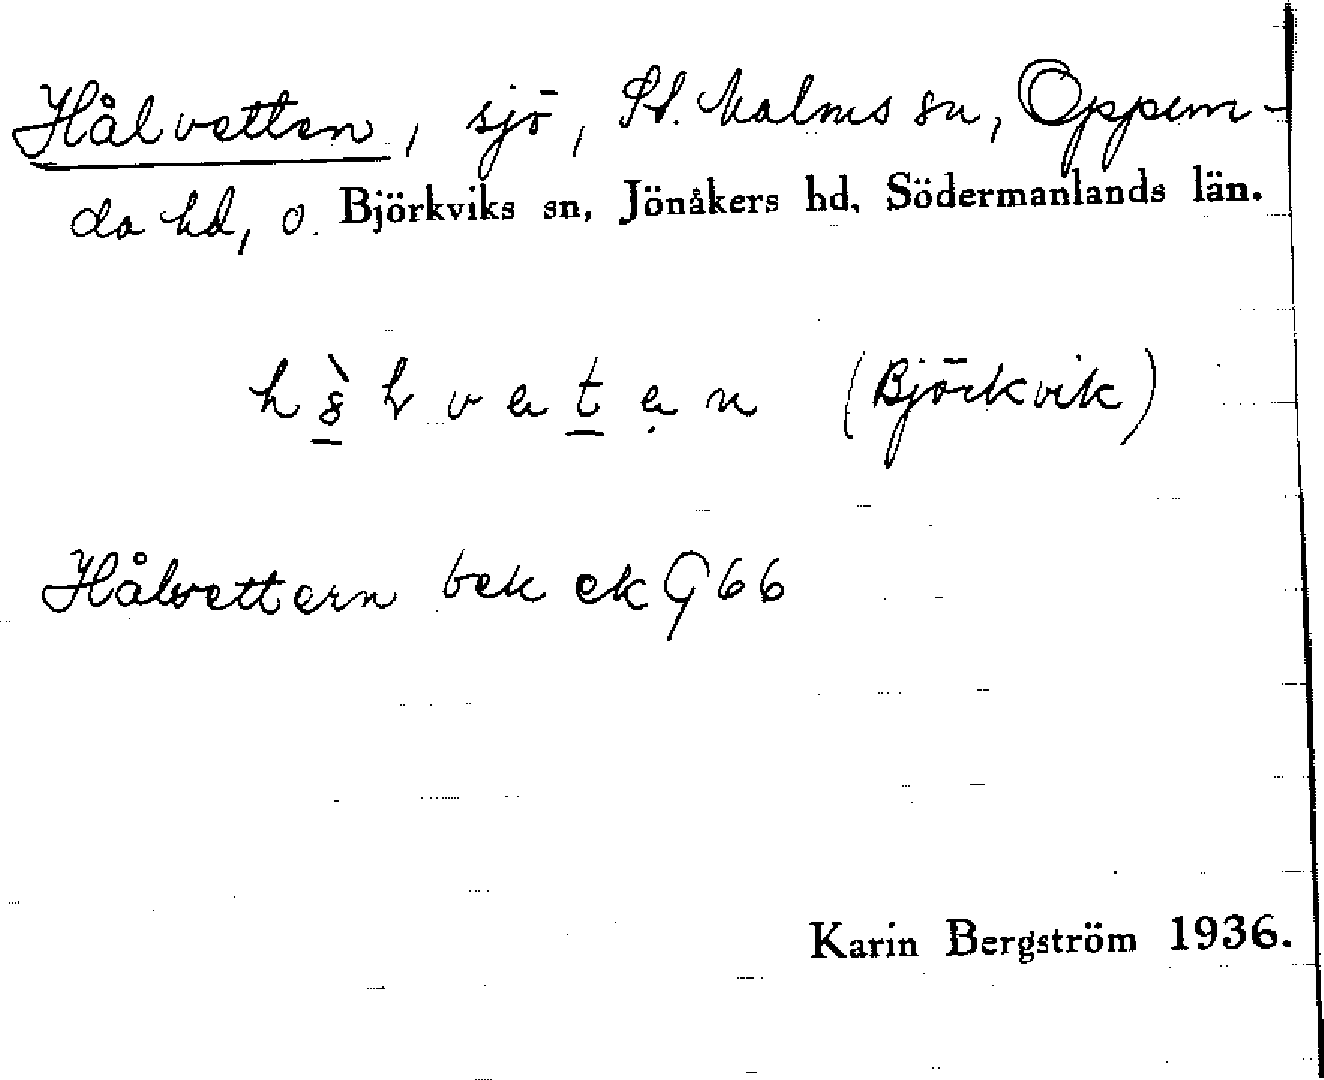 Hålvetten, sjö, St. Malms sn, Oppun-
da hd, o. Björkviks sn, Jönåkers hd, Södermanlands län.
(Björkvik)
Hålvettern bek ek 966
Karin Bergström 1936.